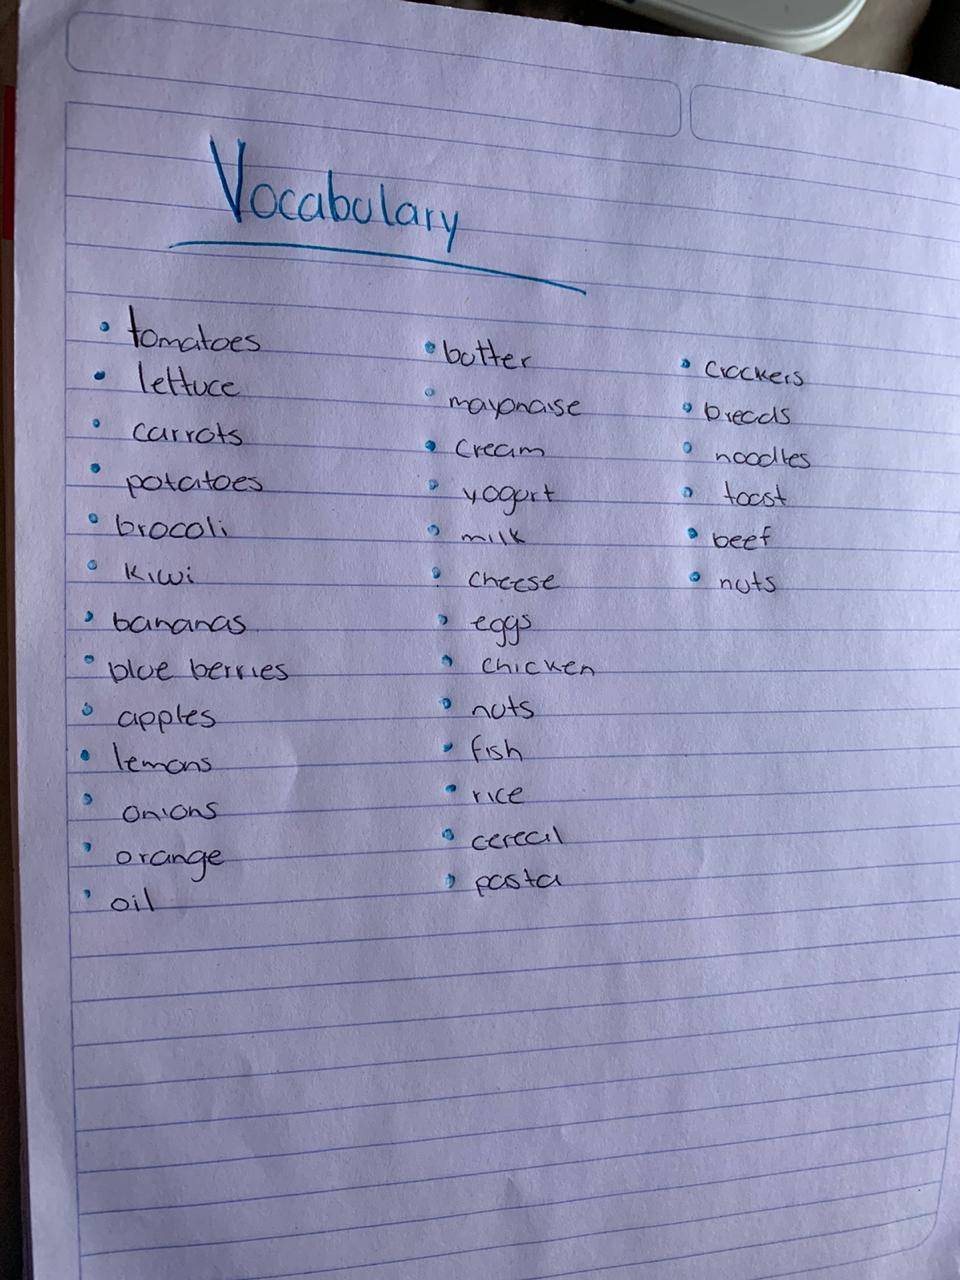 Vocabulary
• tomatoes
• lettuce
• carrots
• potatoes
• brocoli
• kiwi
• bananas
• blue berries
• apples
• lemons
• onions
• orange
• oil
• butter
• mayonaise
• cream
• yogurt
• milk
• cheese
• eggs
• chicken
• nuts
• fish
• rice
• cereal
• pasta
• crackers
• breads
• noodles
• toast
• beef
• nuts